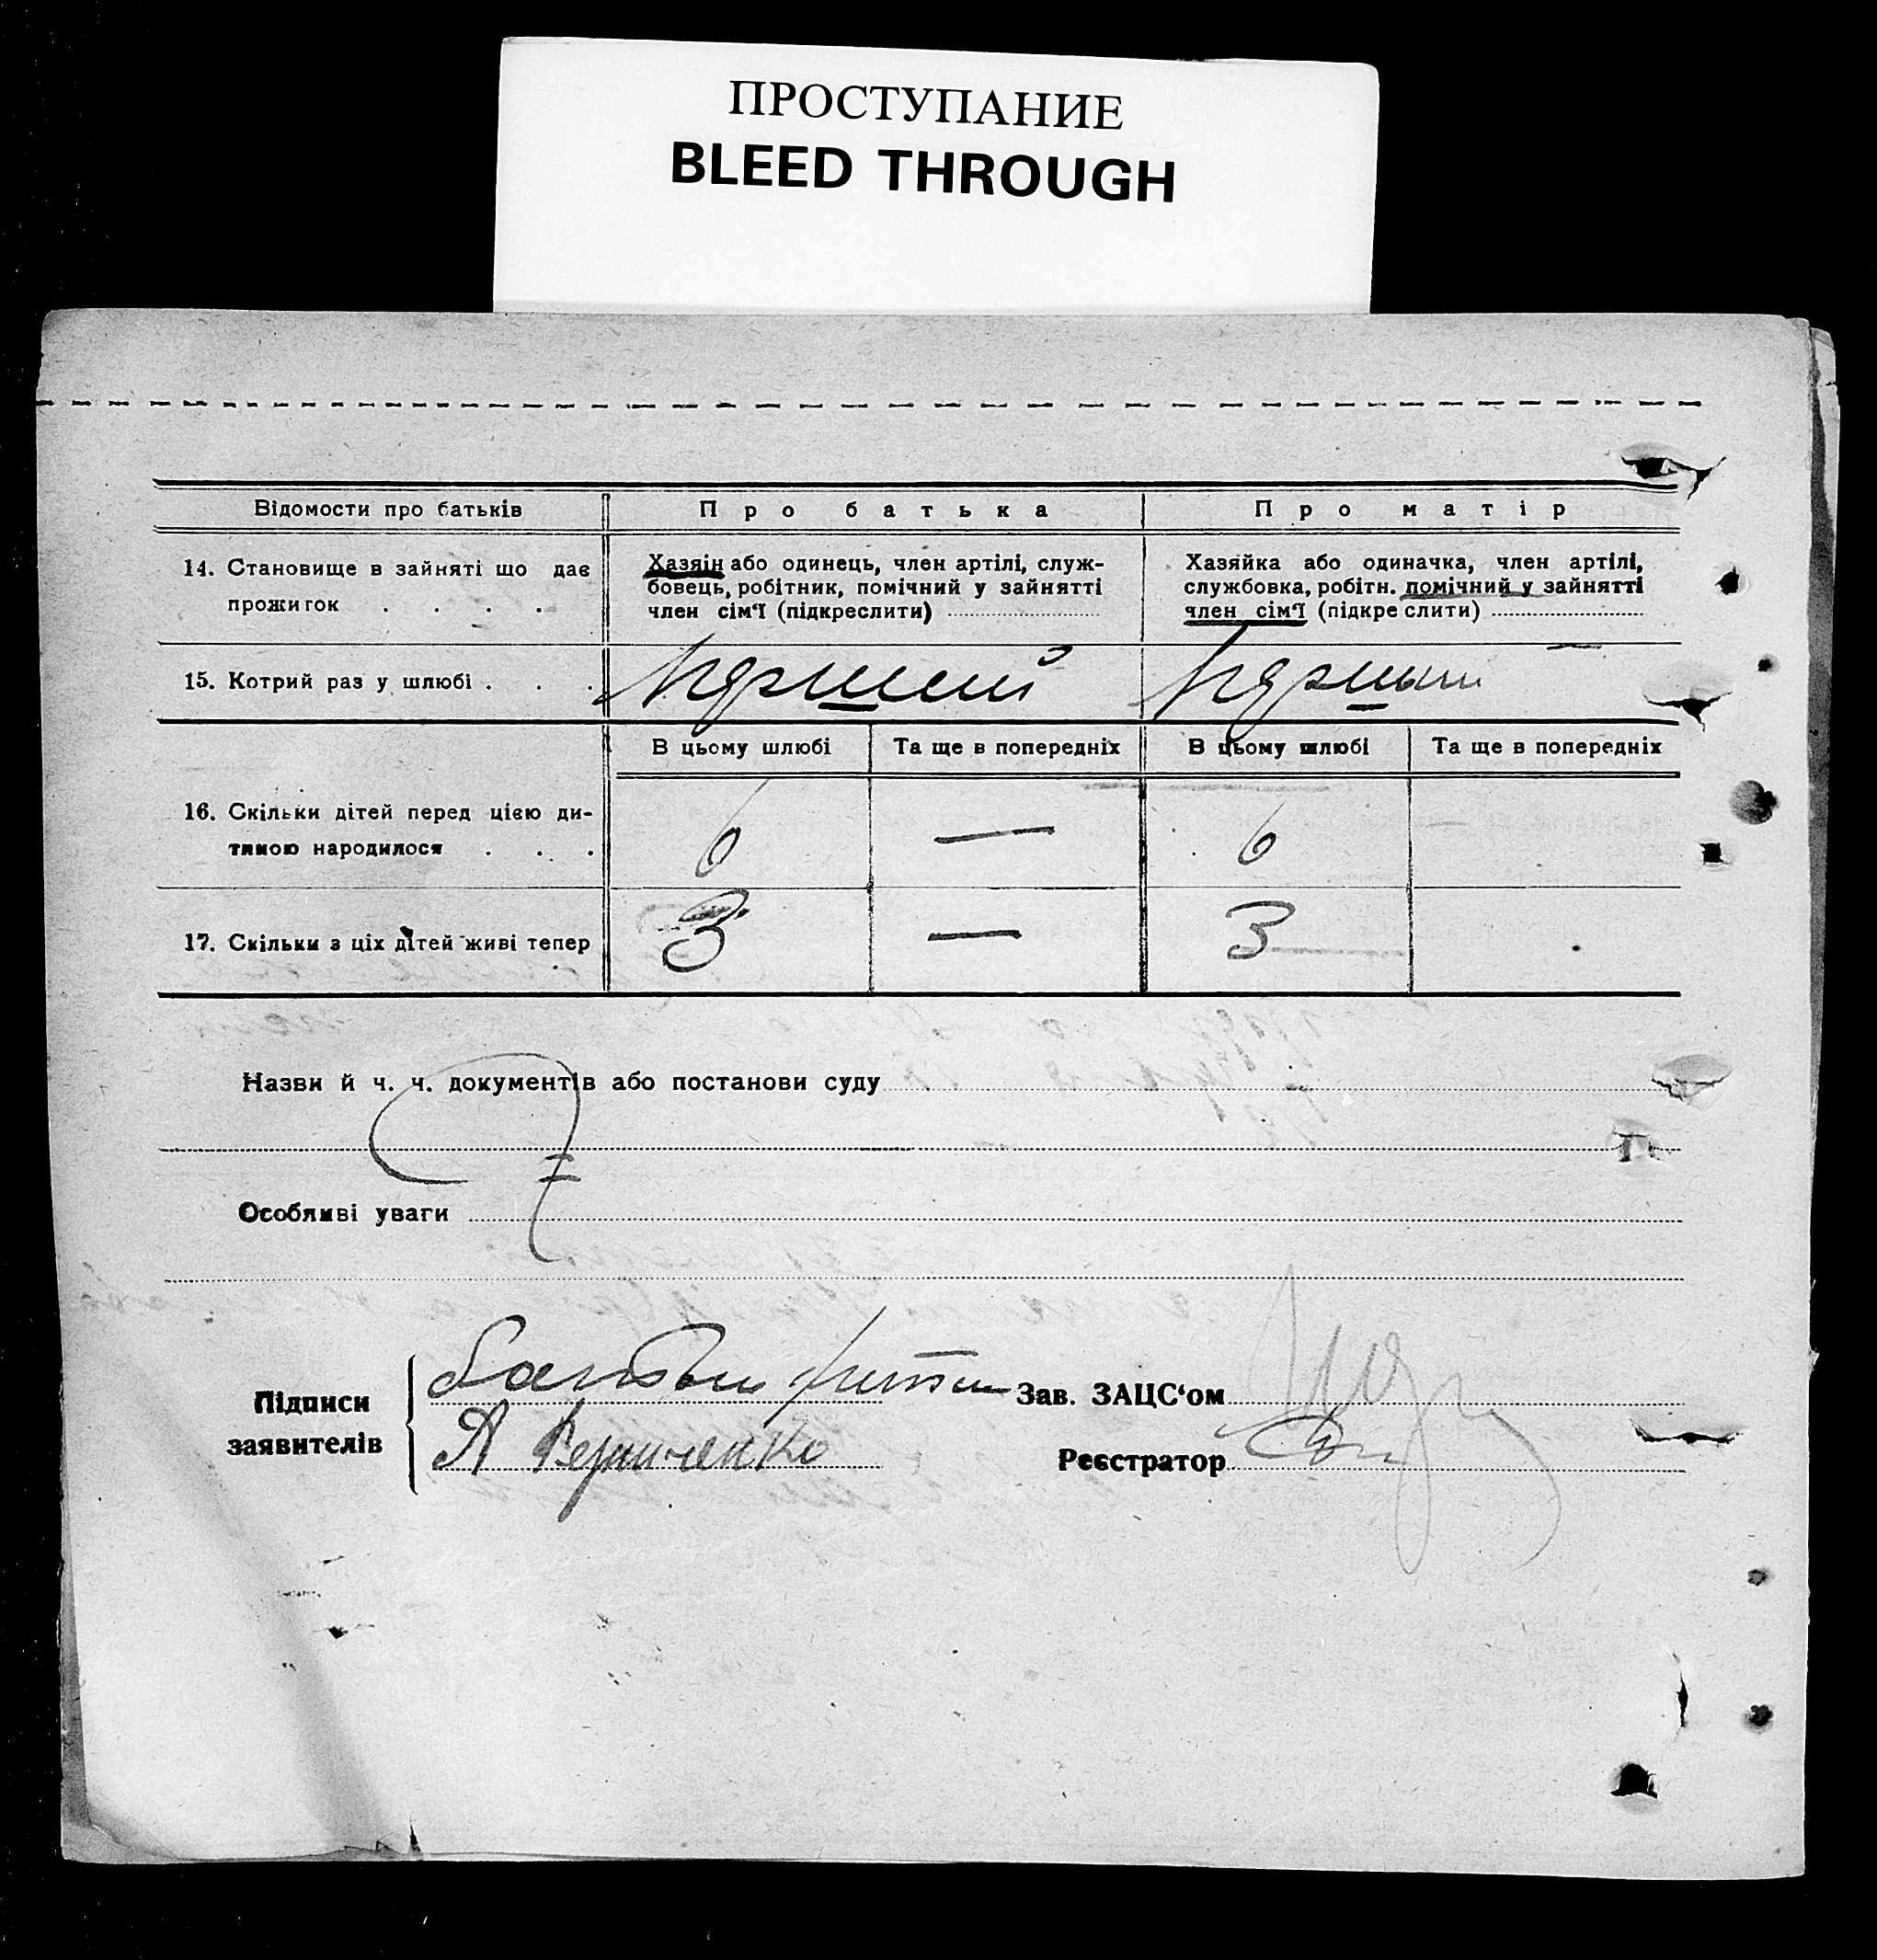 ПРОСТУПАНИЕ
BLEED THROUGH
Відомости про батьків
Про батька
Про матір
14. Становище в зайняті що дає
прожиток . . . .
Хазяін або одинець, член артілі, служ-
бовець, робітник, помічний у зайнятті
член сім'ї (підкреслити)
Хазяйка або одиначка, член артілі,
службовка, робітн. помічний у зайнятті
член сім'ї (підкреслити)
15. Котрий раз у шлюбі . . .
В цьому шлюбі
Та ще в попередніх
В цьому шлюбі
Та ще в попередніх
16. Скільки дітей перед цією ди-
тиною народилося . . .
6 — 6
17. Скільки з ціх дітей живі тепер
3 — 3
Назви й ч. ч. документів або постанови суду
Особливі уваги
Підписи
заявителів
Зав. ЗАЦС'ом
Реєстратор